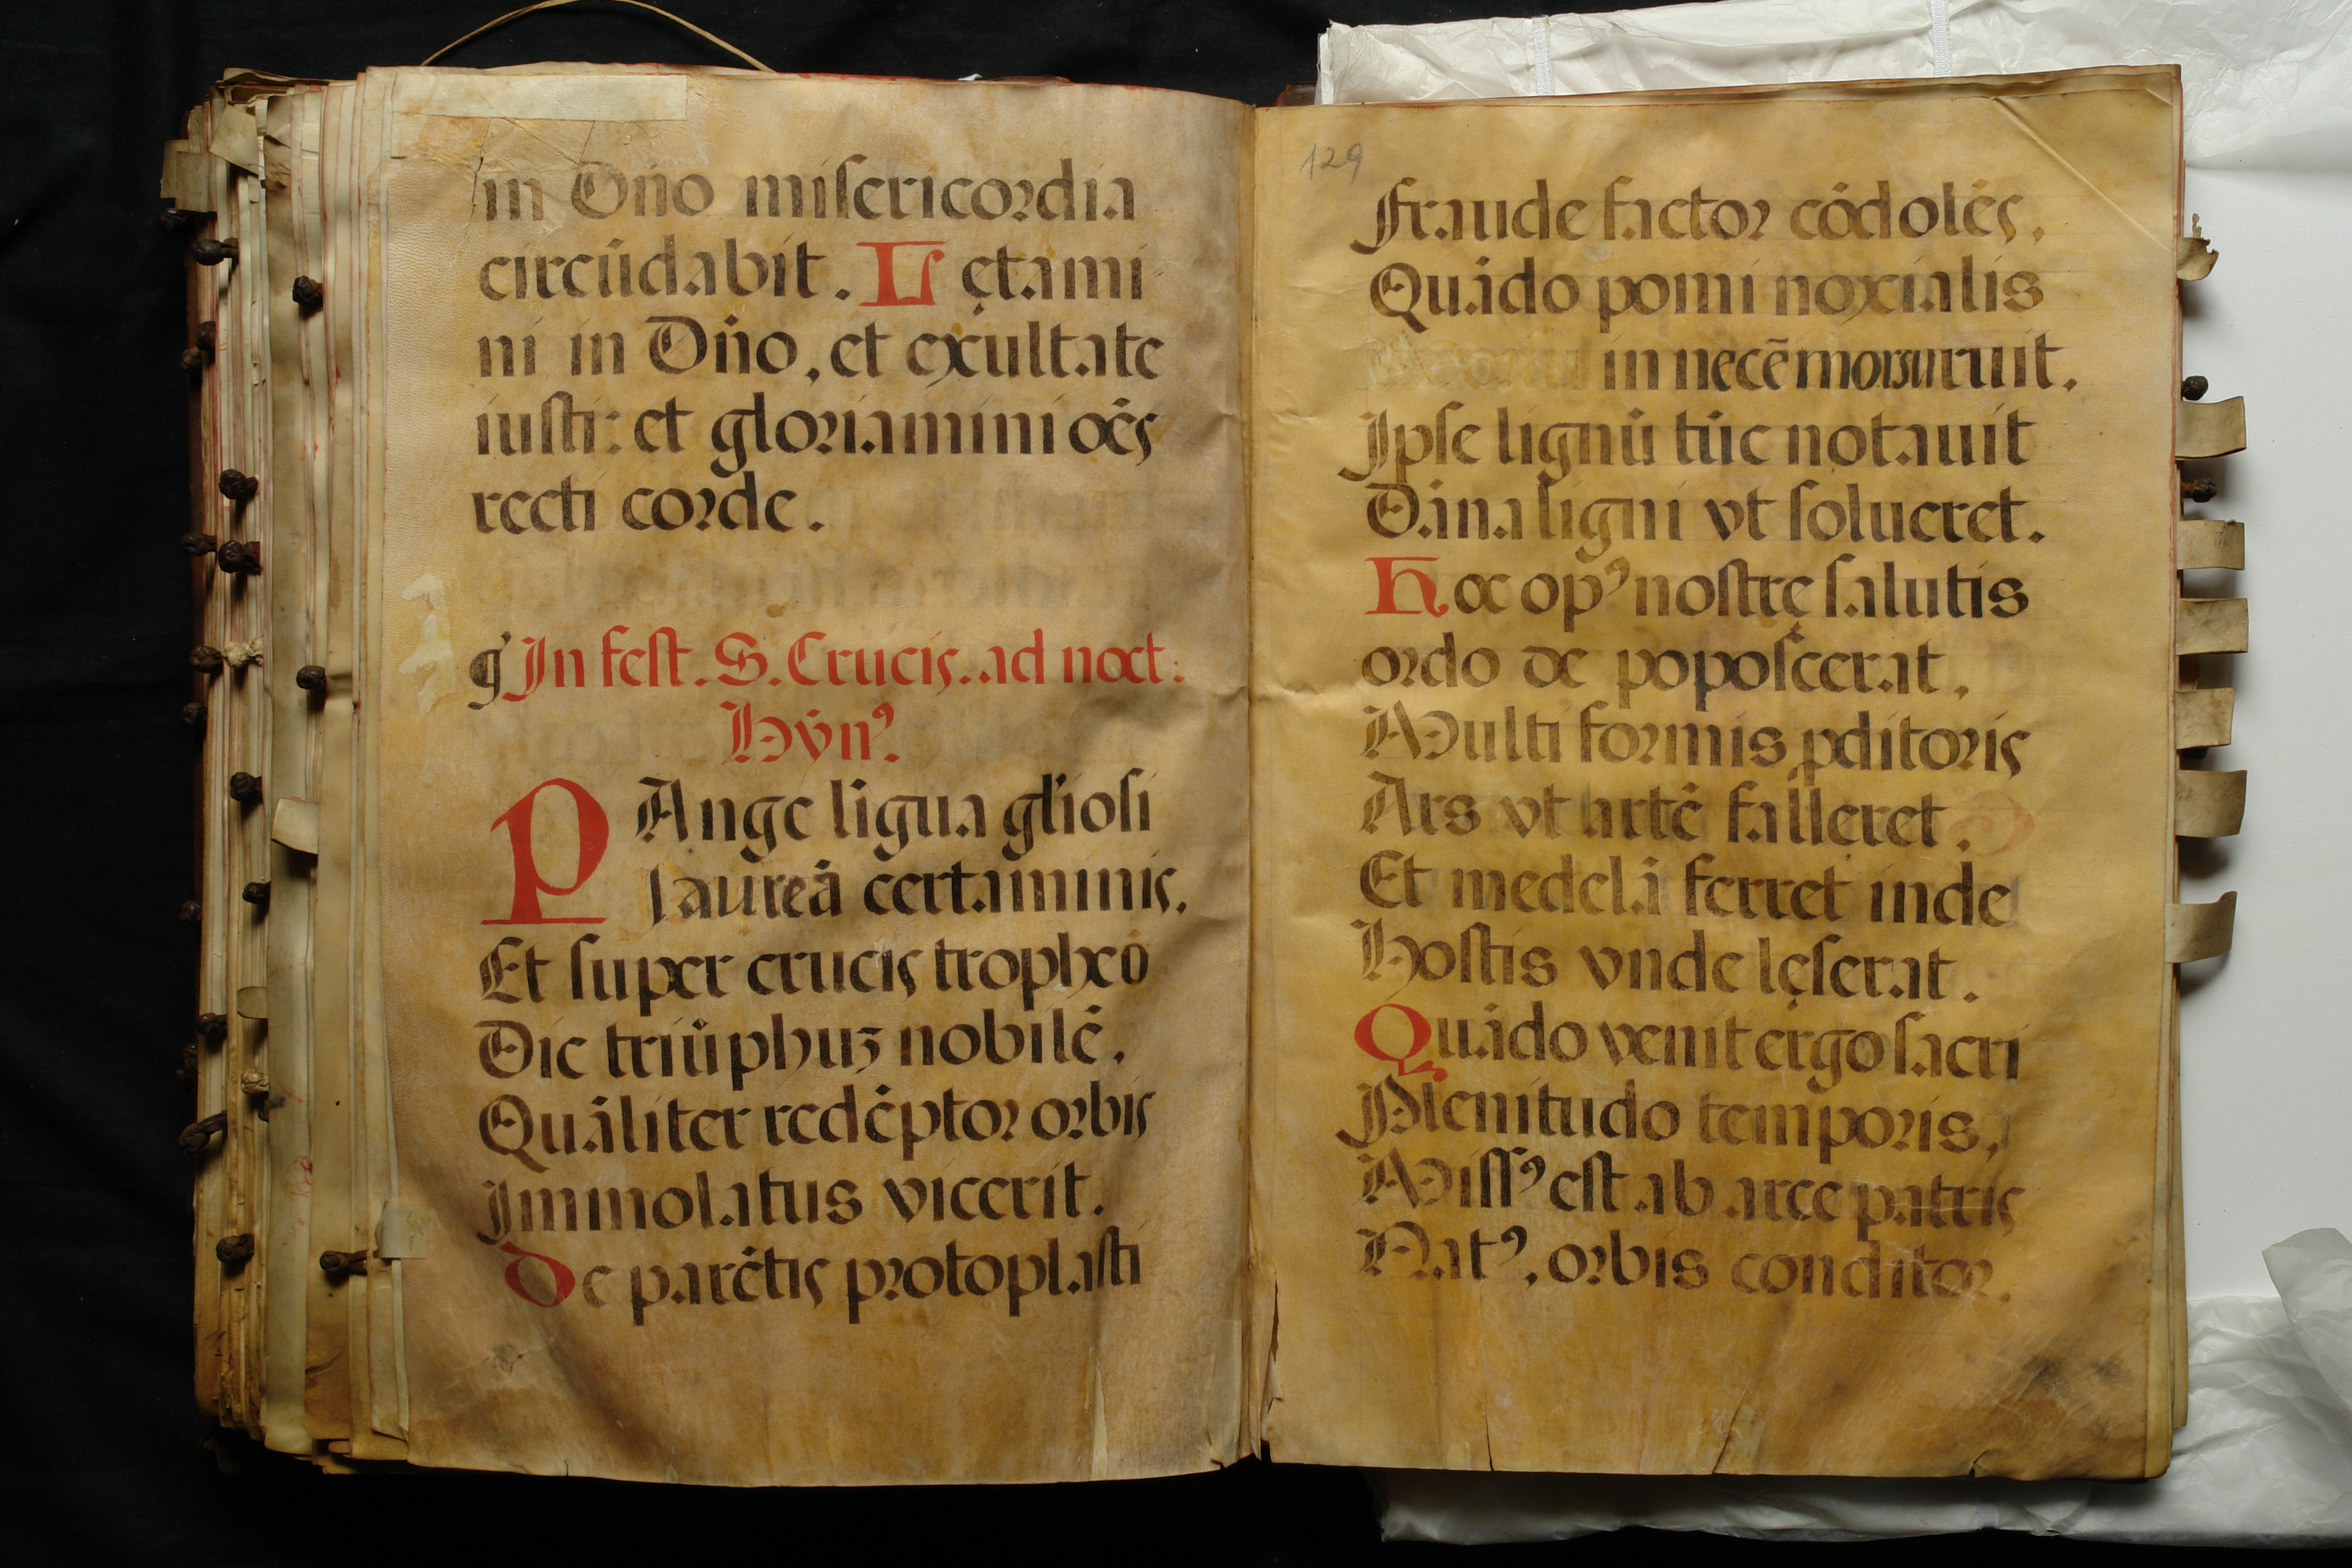 in Dño miſericordia
circūdabit. Lętami
ni in Dño, et exultate
iuſti: et gloriamini oēs
recti corde.
In feſt. S. Crucis. ad noct.
Hẏnꝰ.
PAnge ligua gl'ioſi
laureā certaminis.
Et ſuper crucis tropheo
Dic triūphuʒ nobilē.
Quāliter redēptor orbis
Immolatus vicerit.
De parētis protoplaſti
129
Fraude factor cōdolēs,
Quādo pomi noxialis
in necē morsu ruit.
Ipſe lignū tūc notauit
Dāna ligni vt ſolueret.
Hoc opꝰ noſtrę ſalutis
ordo de popoſcerat,
Multi formis ꝓditoris
Ars vt artē falleret.
Et medelā ferret inde
Hoſtis vnde lęſerat.
Quādo venit ergo ſacri
Plenitudo temporis,
Miſſꝰ eſt ab arce patris
Natꝰ, orbis conditor.